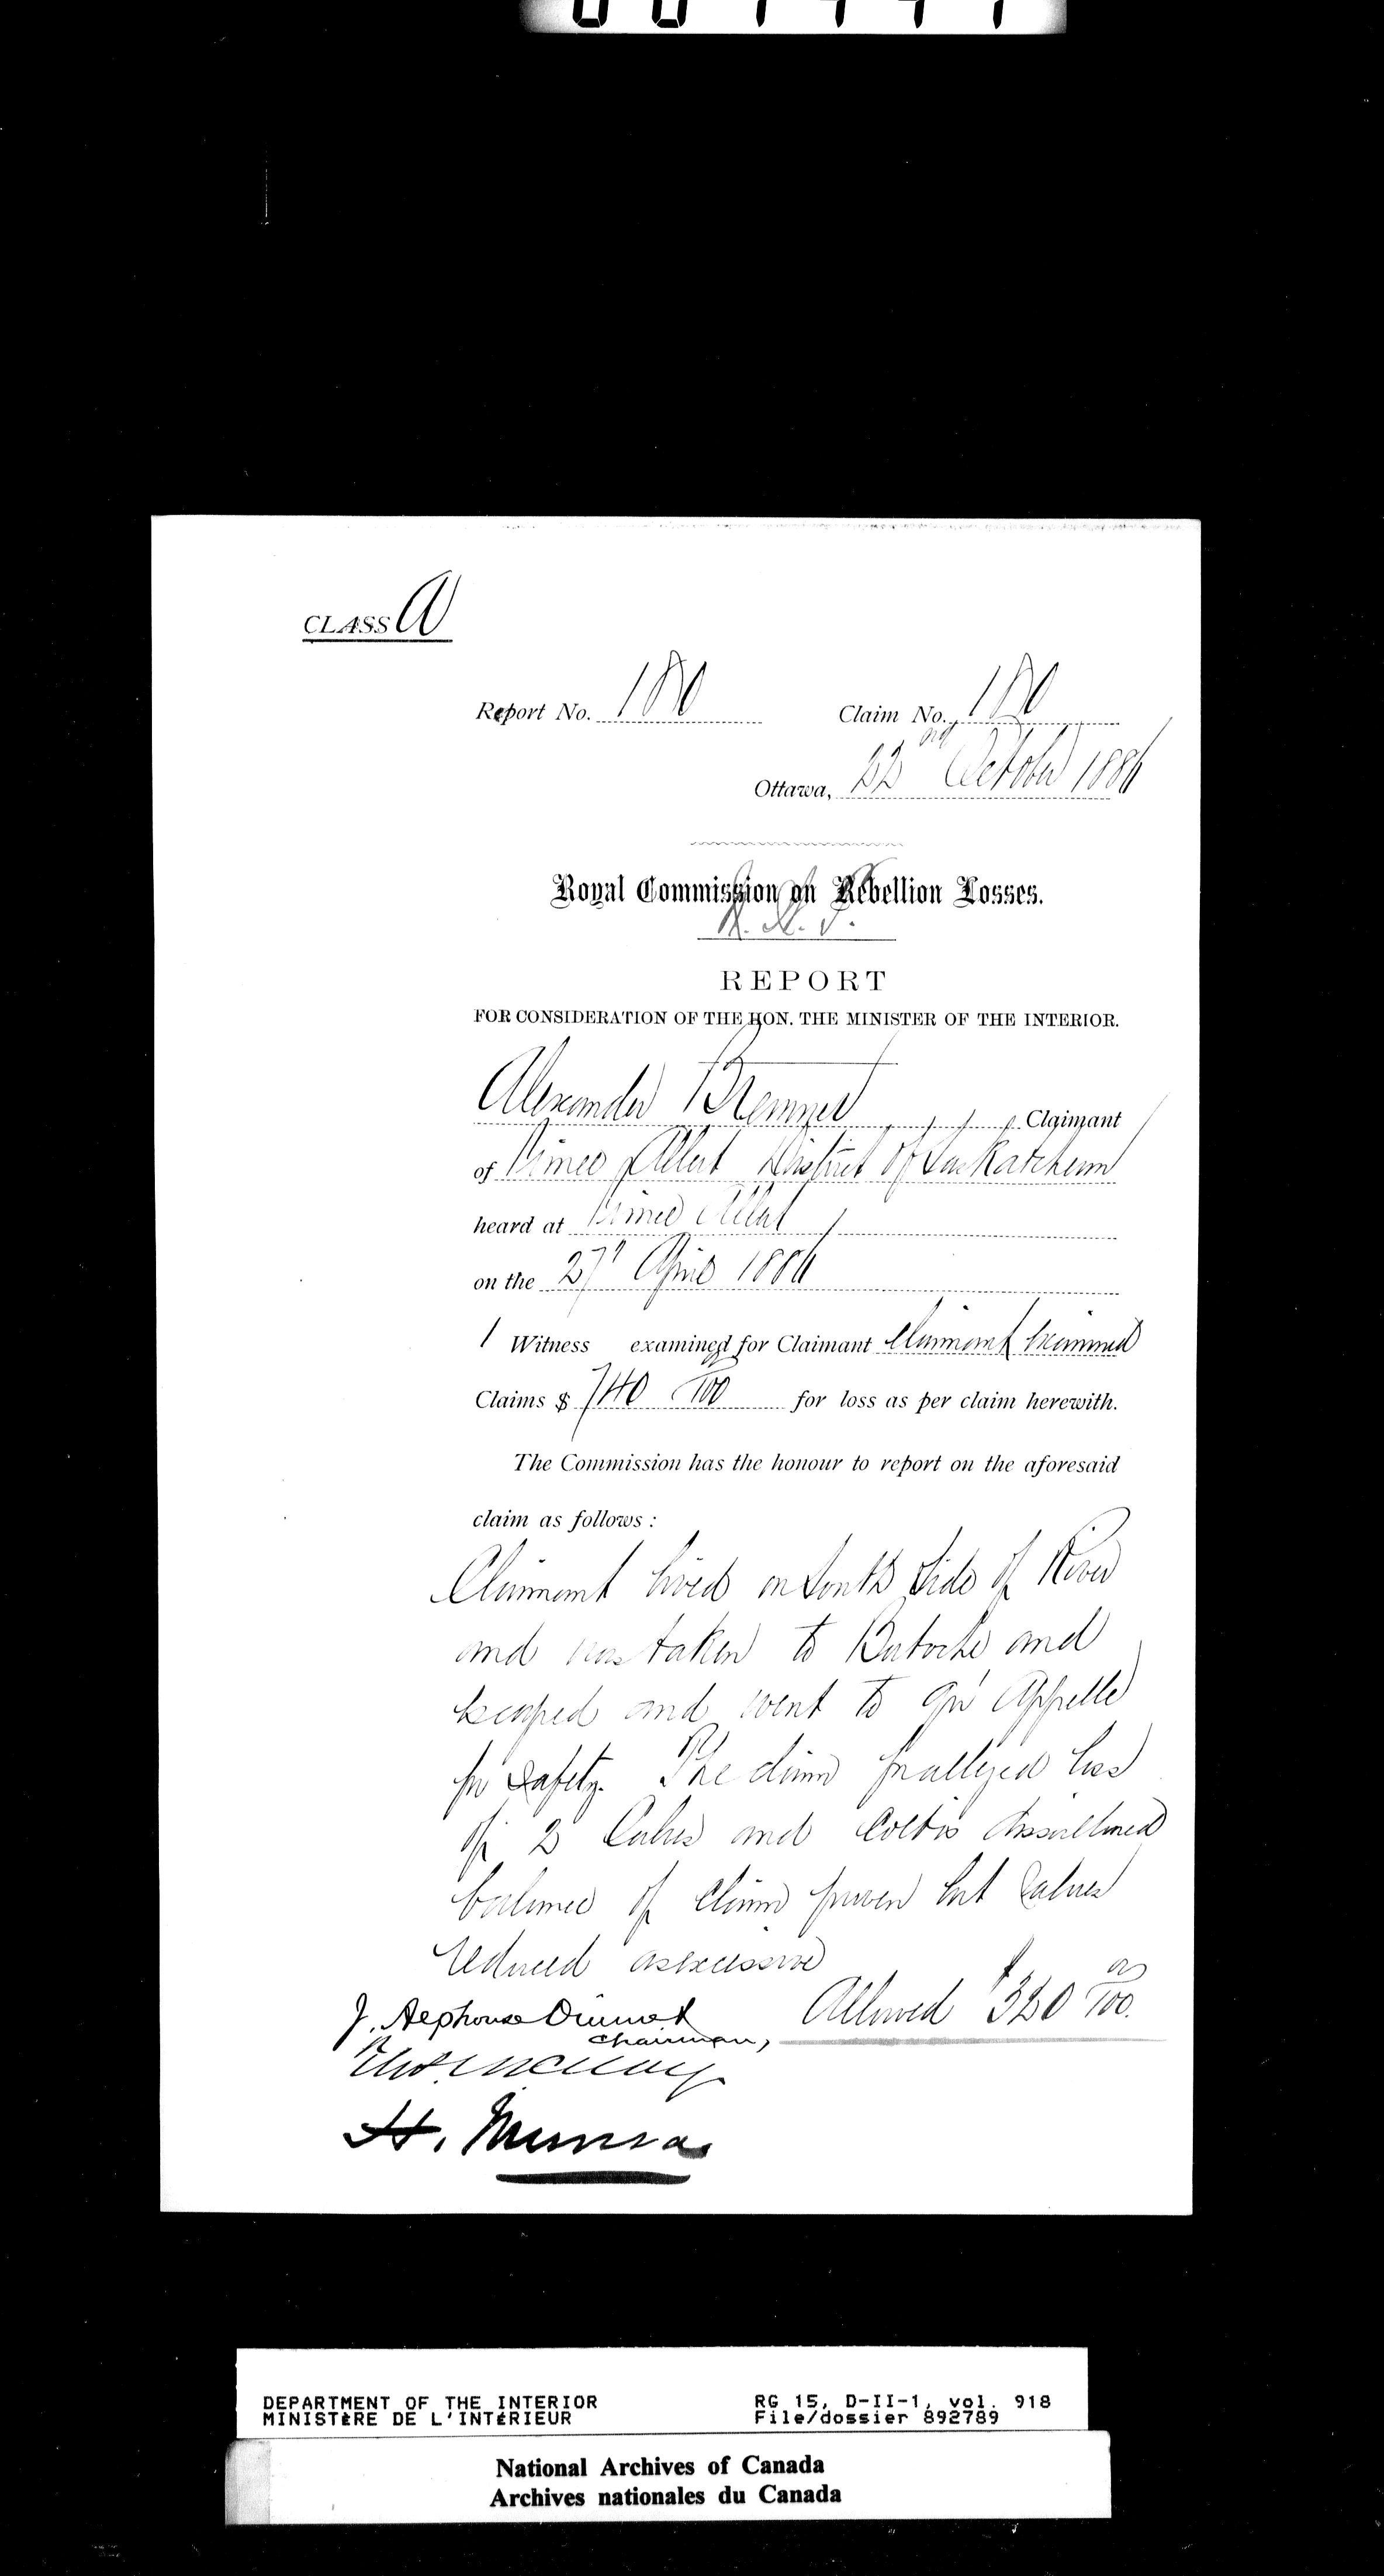 CLASS A
Report No. 180 Claim No. 180
Ottawa, 22nd October 1886
Royal Commission on Rebellion Losses.
REPORT
FOR CONSIDERATION OF THE HON. THE MINISTER OF THE INTERIOR.
Alexander Bremner Claimant
of Prince Albert District of Saskatchewan
heard at Prince Albert
on the 27" April 1886
1 Witness examined for Claimant Claimant Examined
Claims $ 740 00/100 for loss as per claim herewith.
The Commission has the honour to report on the aforesaid
claim as follows:
Claimant lived on South Side of River
and was taken to Batoche and
Escaped and went to Qu'Appelle
for Safety. The claim for alleged loss
of 2 Calves and disallowed
balance of Claim proven but values
reduced as excessive
Allowed $320 00/100.
J. Alphonse Ouimet
Chairman,
H. Muma
DEPARTMENT OF THE INTERIOR RG 15, D-II-1, vol. 918
MINISTÈRE DE L'INTÉRIEUR File/dossier 892789
National Archives of Canada
Archives nationales du Canada